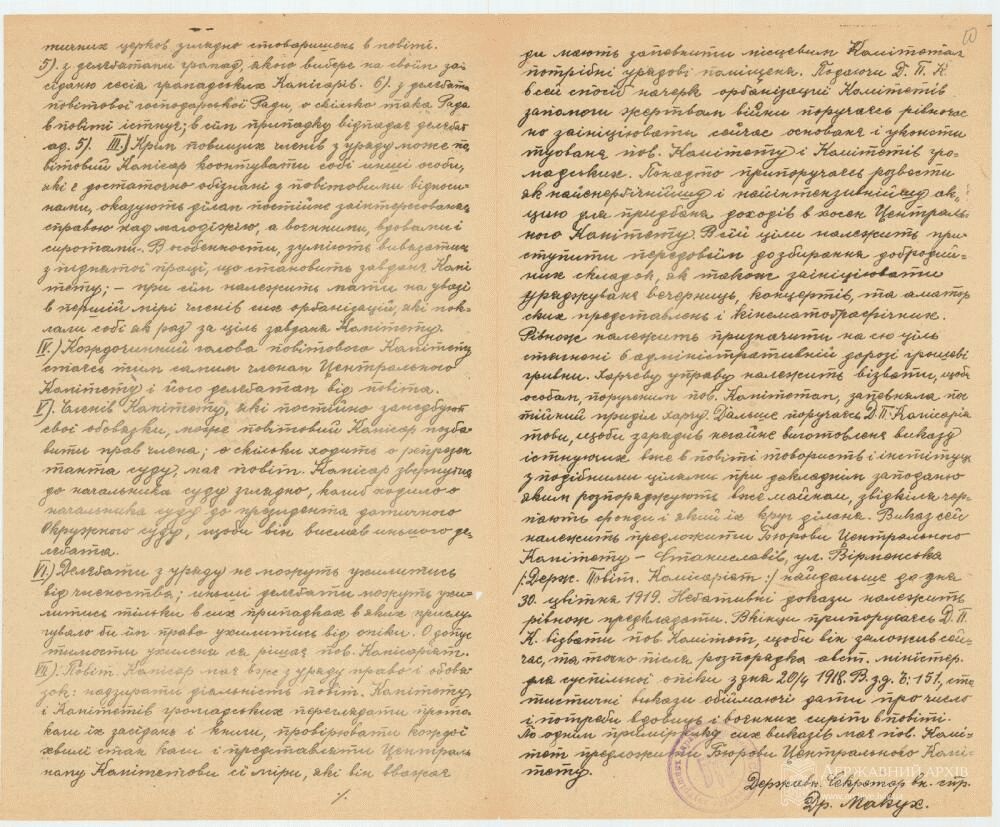 тичних церков зглядно стоваришень в повіті.
5). з делєгатами громад, якого вибере на своїм за-
сіданю сесія громадських Комісарів. 6). з делєгата
повітової господарської Ради, о скілько така Рада
в повіті істнує; в сім припадку відпадає делєгат
ад. 5). III.) Крім повисших членів з уряду може по-
вітовий Комісар кооптувати собі инші особи,
які є достаточно обізнані з повітовими відноси-
нами, оказують ділам постійне заінтересованє
справою над молодіжю, а воєнними, вдовами і
сиротами. В особенности, зуміють вивязатись
з піднятої праці, що становить завданя Комі-
тету; – при сім належить мати на увазі
в першій мірі членів сих орґанізацій, які пок-
лали собі як раз за ціль завданя Комітету.
IV.) Кождочинний голова повітового Комітету
стаєсь тим самим членом Центрального
Комітету і його делєґатом від повіта.
V). Членів Комітету, які постійно занедбують
свої обовязки, може повітовий Комісар позба-
вити прав члена; о скільки ходить о репрезен-
танта суду, має повіт. Комісар звернутися
до начальника суду зглядно, колиб ходило о
начальника суду до президента дотичного
Окружного суду, щоби він вислав иньшого де-
лєґата.
VI.) Делєґати з уряду не можуть ухилитись
від членства; иньші делєґати можуть ухи-
литись тільки в сих припадках в яких прислу-
гувало би їм право ухилитись від опіки. О допус-
тимости ухиленя ся рішає пов. Комісаріят.
VII.) Повіт. Комісар має вже з уряду право і обовя-
зок: надзирати діяльність повіт. Комітету,
і Комітетів громадських переглядати прото-
коли їх засідань і книги, провірювати кождої
хвилі стан каси і представляти Централь-
ному Комітетови сі міри, які він вважає
./.
ди мають запевнити місцевим Комітетам
потрібні урядові поміщеня. Подаючи Д. П. К.
в сей спосіб начерк орґанізациї Комітетів
запомоги жертвам війни поручаєсь рівночас-
но заініціювати сейчас основаня і уконсти-
туованя пов. Комітету і Комітетів гро-
мадських. Понадто припоручаєсь розвести
як найенерґічнійшу і найінтензивнійшу ак-
цию для придбаня доходів в хосен Централь-
ного Комітету. В сій ціли належить при-
ступити передовсім до збираня добродій-
них складок, як також заініціювати
уряджуваня вечерниць, концертів, та аматор-
ских представлень і кінематоґрафічних.
Рівнож належить призначити на сю ціль
стягнені в адміністративній дорозі грошеві
гривни. Харчеву управу належить візвати, щоби
особам, порученим пов. Комітетом, запевняла пос-
тійний приділ харчу. Дальше поручаєсь Д. П. Комісарія-
тови, щоби зарядив негайне виготовленя виказу
істнуючих вже в повіті товариств і інституцій
з подібними цілями при докладнім заподаню
яким розпоряджують вже майном, звідкіля чер-
пають фонди і який їх круг діланя. Виказ сей
належить предложити Бюрови Центрального
Комітету – Станиславів, ул. Вірменська
/: Держ. Повіт. Комісаріят :/ найдальше до дня
30. цвітня 1919. Неґативні докази належить
рівнож предкладати. Вкінци припоручаєсь Д. П.
К. візвати пов. Комітет, щоби він заложив сей-
час, та точно після розпорядка авст. міністер.
для суспільної опіки з дня 20/4 1918 В. з. д. Ч: 151, ста-
тистичні викази обіймаючі дати про число
і потреби вдовиць і воєнних сиріт в повіті.
По однім примірнику сих виказів має пов. Комі-
тет предложити Бюрови Центрального Комі-
тету.
Державн. Секретар вн. спр.
Др. Макух.
ДЕРЖАВНИЙ АРХІВ